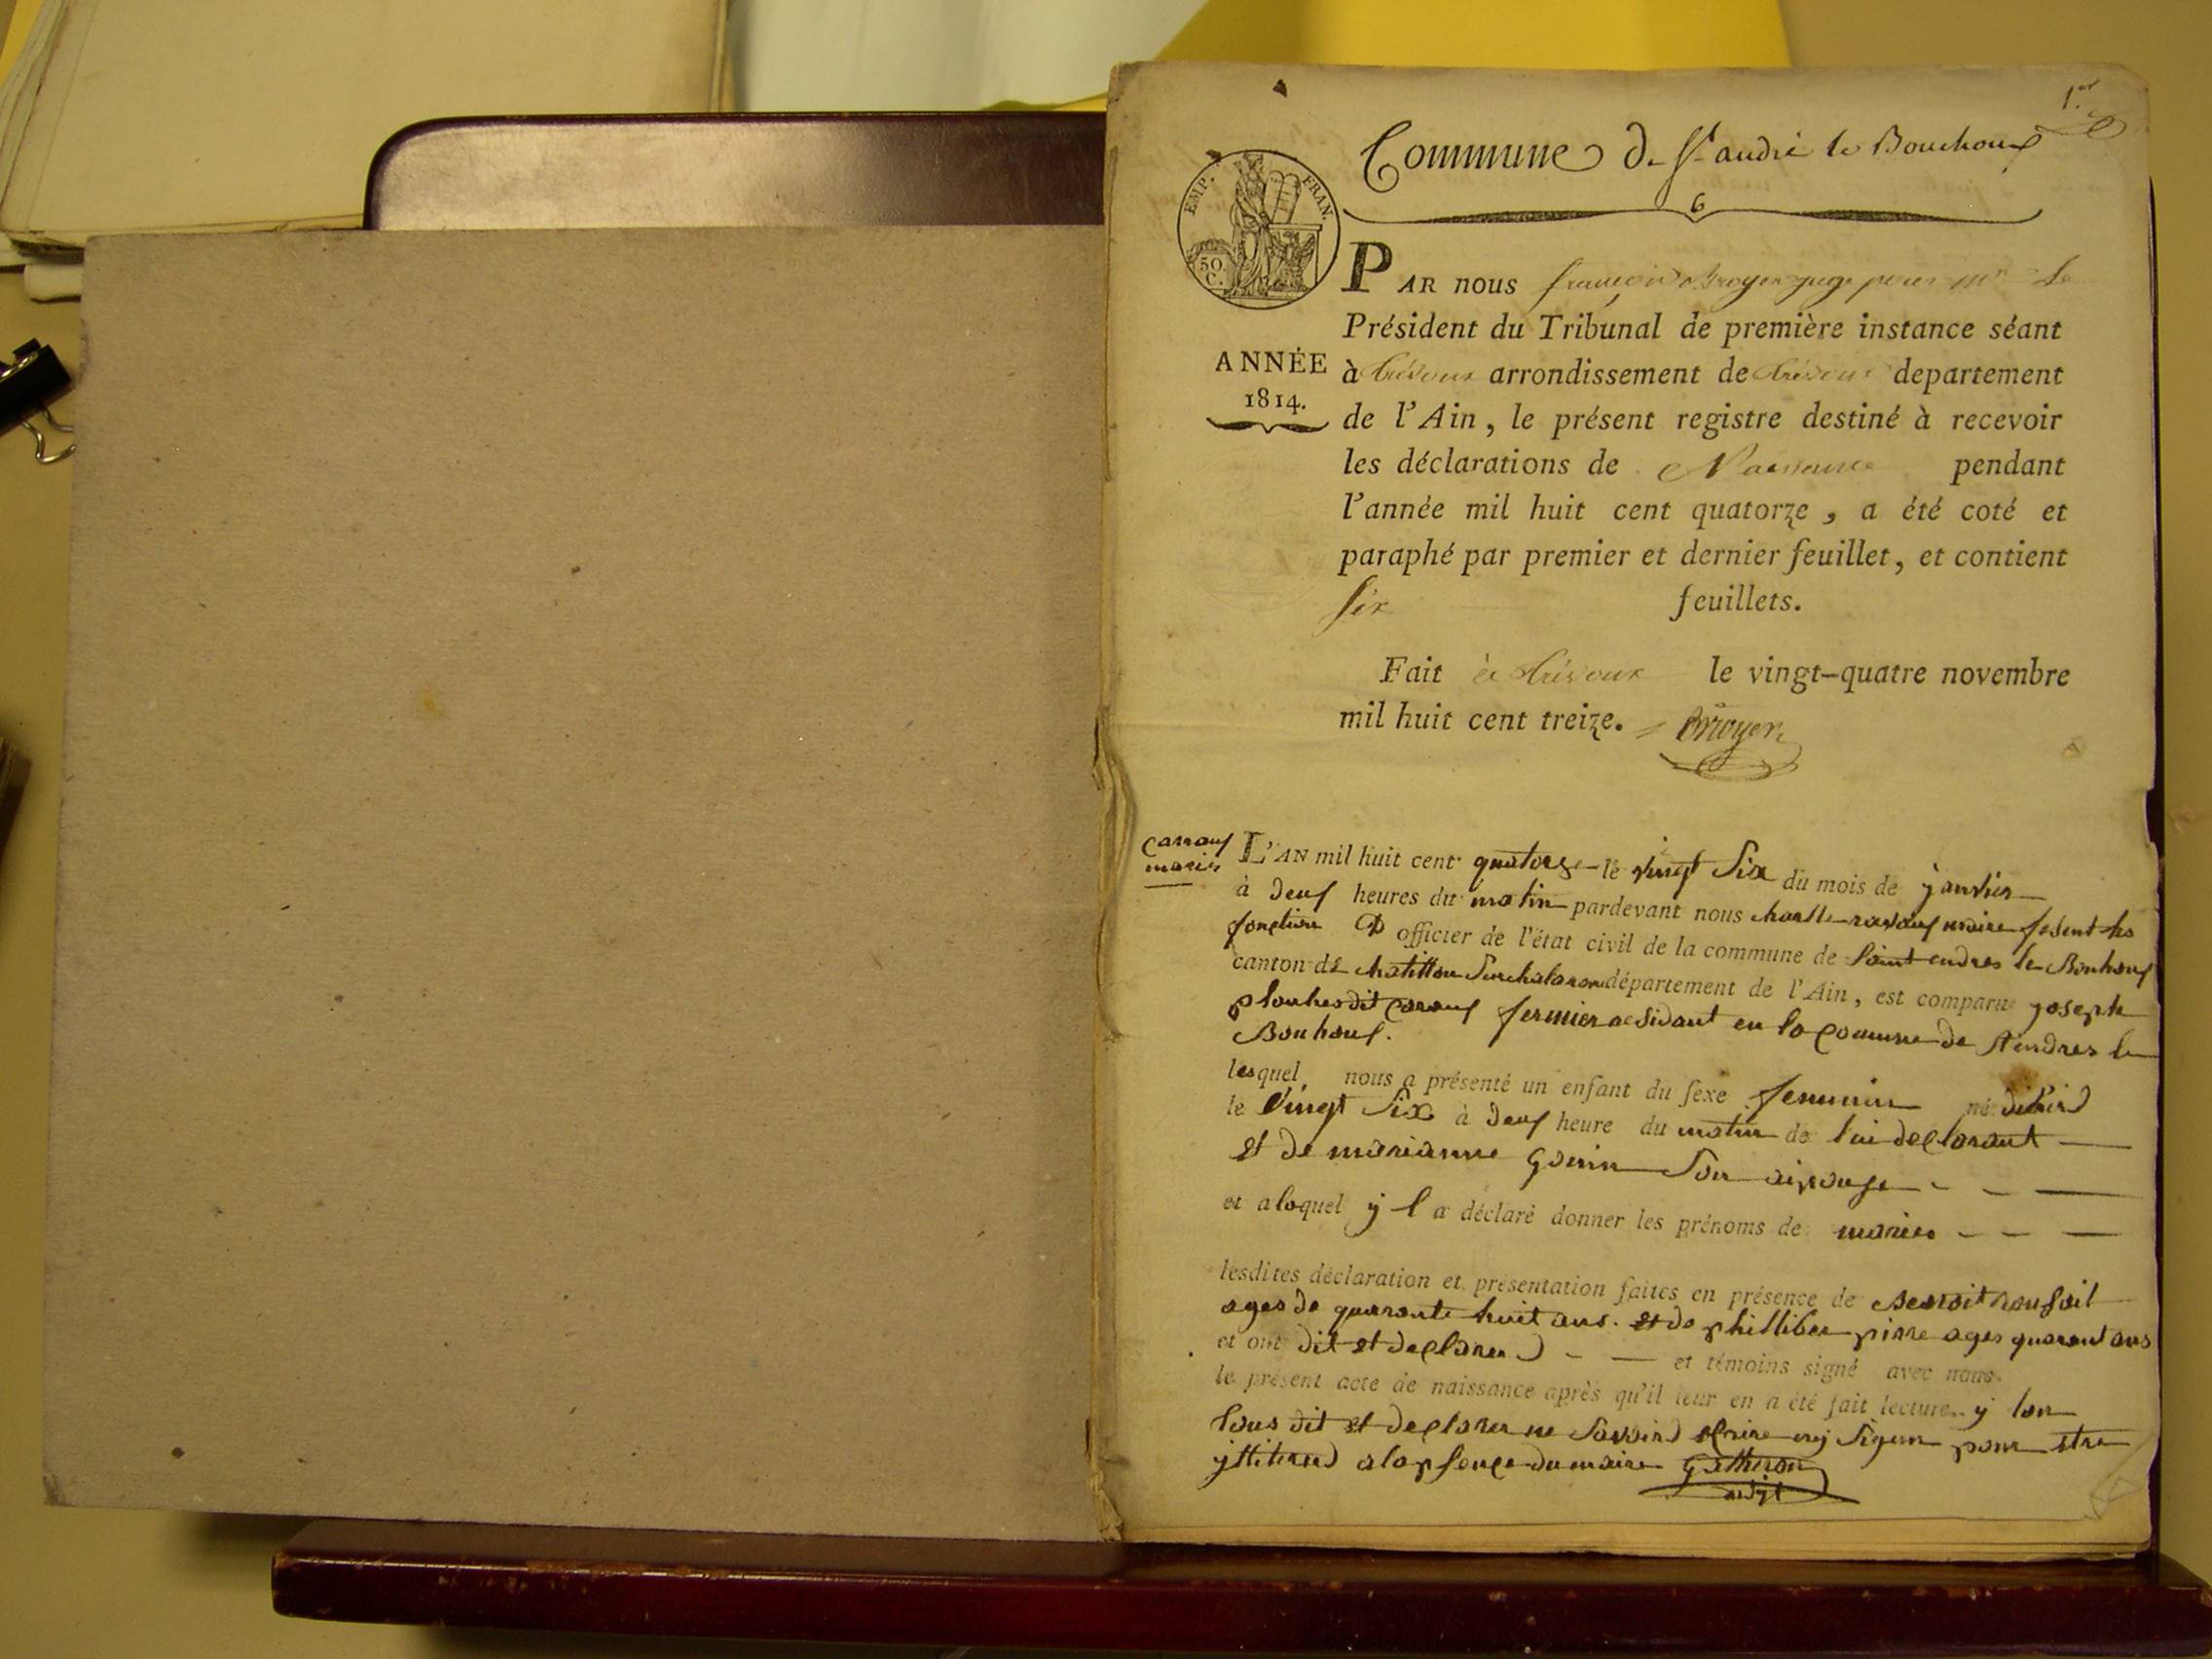 1.er
Commune de St andré le Bouchoux
6
EMP. FRAN.
50. C.
PAR nous françois Broyer juge pour Mr Le
Président du Tribunal de première instance séant
ANNÉE
1814.
à trévoux arrondissement de trévoux departement
de l'Ain, le présent registre destiné à recevoir
les déclarations de Naissance pendant
l'année mil huit cent quatorze, a été coté et
paraphé par premier et dernier feuillet, et contient
six feuillets.
Fait à trévoux le vingt-quatre novembre
mil huit cent treize. Broyer
Carrouf
marie
L'AN mil huit cent quatorze le vingt Six du mois de janvier
à deuf heures du matin pardevant nous maire fesent les
fonction D officier de l'état civil de la commune de Saint andres le Bouhouf
canton de chatillon Surchalaron département de l'Ain, est comparu joseph
dit Carouf fermier residant en la Comune de St endres le
Bouhouf.
lesquel nous a présenté un enfant du sexe feminin né
le vingt Six à deuf heure du matin de lui declarant
et de marianne Gonin Son aipouse
et a laquel y l a déclaré donner les prénoms de marie
lesdites déclaration et présentation faites en présence de Benoit
ages de quarante huit ans. et de philliber pirre ages quarant ans
et ont dit et declarer et témoins signé avec nous
le présent acte de naissance après qu'il leur en a été fait lecture. y lon
tous dit et declarer ne Savoird ecrire ny Signer pour etre
a lapsence du maire